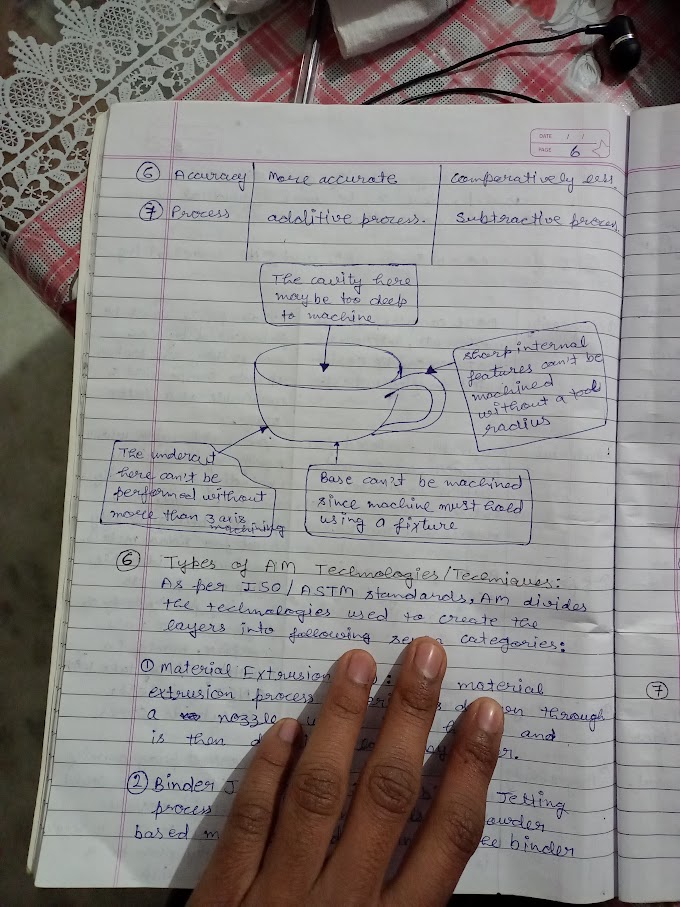 DATE / /
PAGE 6
⑥ Accuracy More accurate Comparatively less
⑦ Process additive process. Subtractive process
The cavity here
may be too deep
to machine
sharp internal
features can't be
machined
without a tool
radius
The undercut
here can't be
performed without
more than 3 axis
machining
Base can't be machined
since machine must hold
using a fixture
⑥ Types of AM Technologies/Techniques:
As per ISO/ASTM standards, AM divides
the technologies used to create the
layers into following seven categories:
① Material Extrusion : material
extrusion process is drawn through
a nozzle and
is then
② Binder Jetting
process powder
based binder
⑦